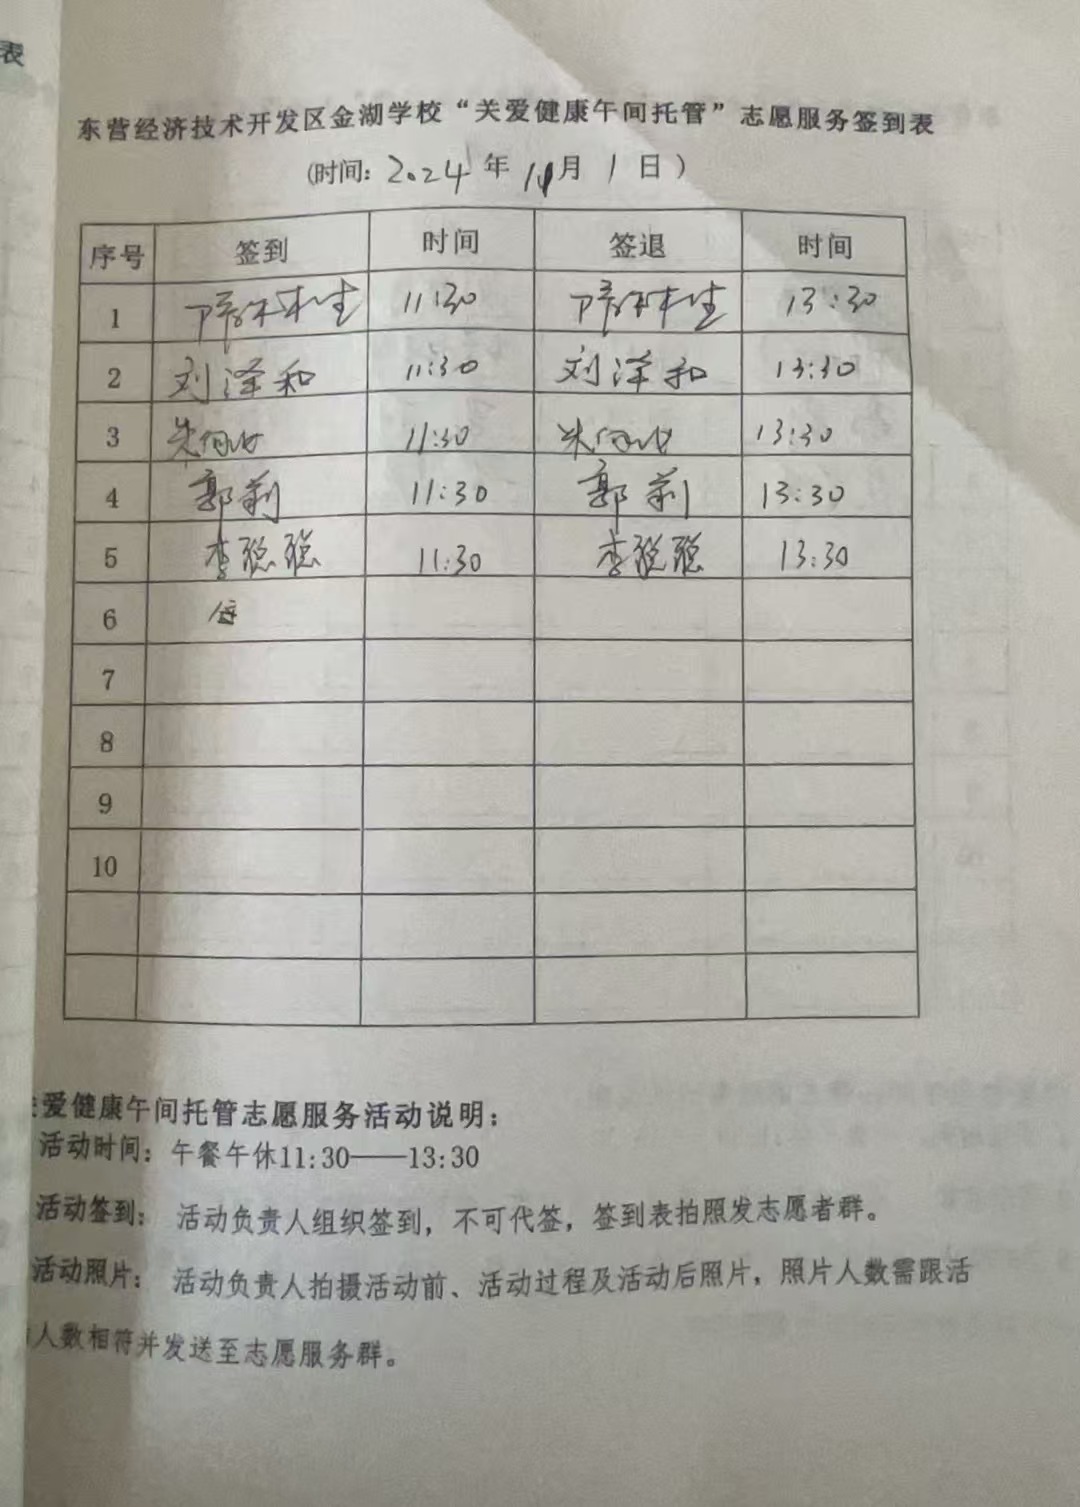 表
东营经济技术开发区金湖学校“关爱健康午间托管”志愿服务签到表
(时间: 2024 年 11 月 1 日 )
序号 签到 时间 签退 时间
1 11:30 13:30
2 刘泽和 11:30 刘泽和 13:30
3 11:30 13:30
4 郭莉 11:30 郭莉 13:30
5 李聪聪 11:30 李聪聪 13:30
6
7
8
9
10
爱健康午间托管志愿服务活动说明：
活动时间：午餐午休11:30——13:30
活动签到： 活动负责人组织签到，不可代签，签到表拍照发志愿者群。
活动照片： 活动负责人拍摄活动前、活动过程及活动后照片，照片人数需跟活
人数相符并发送至志愿服务群。